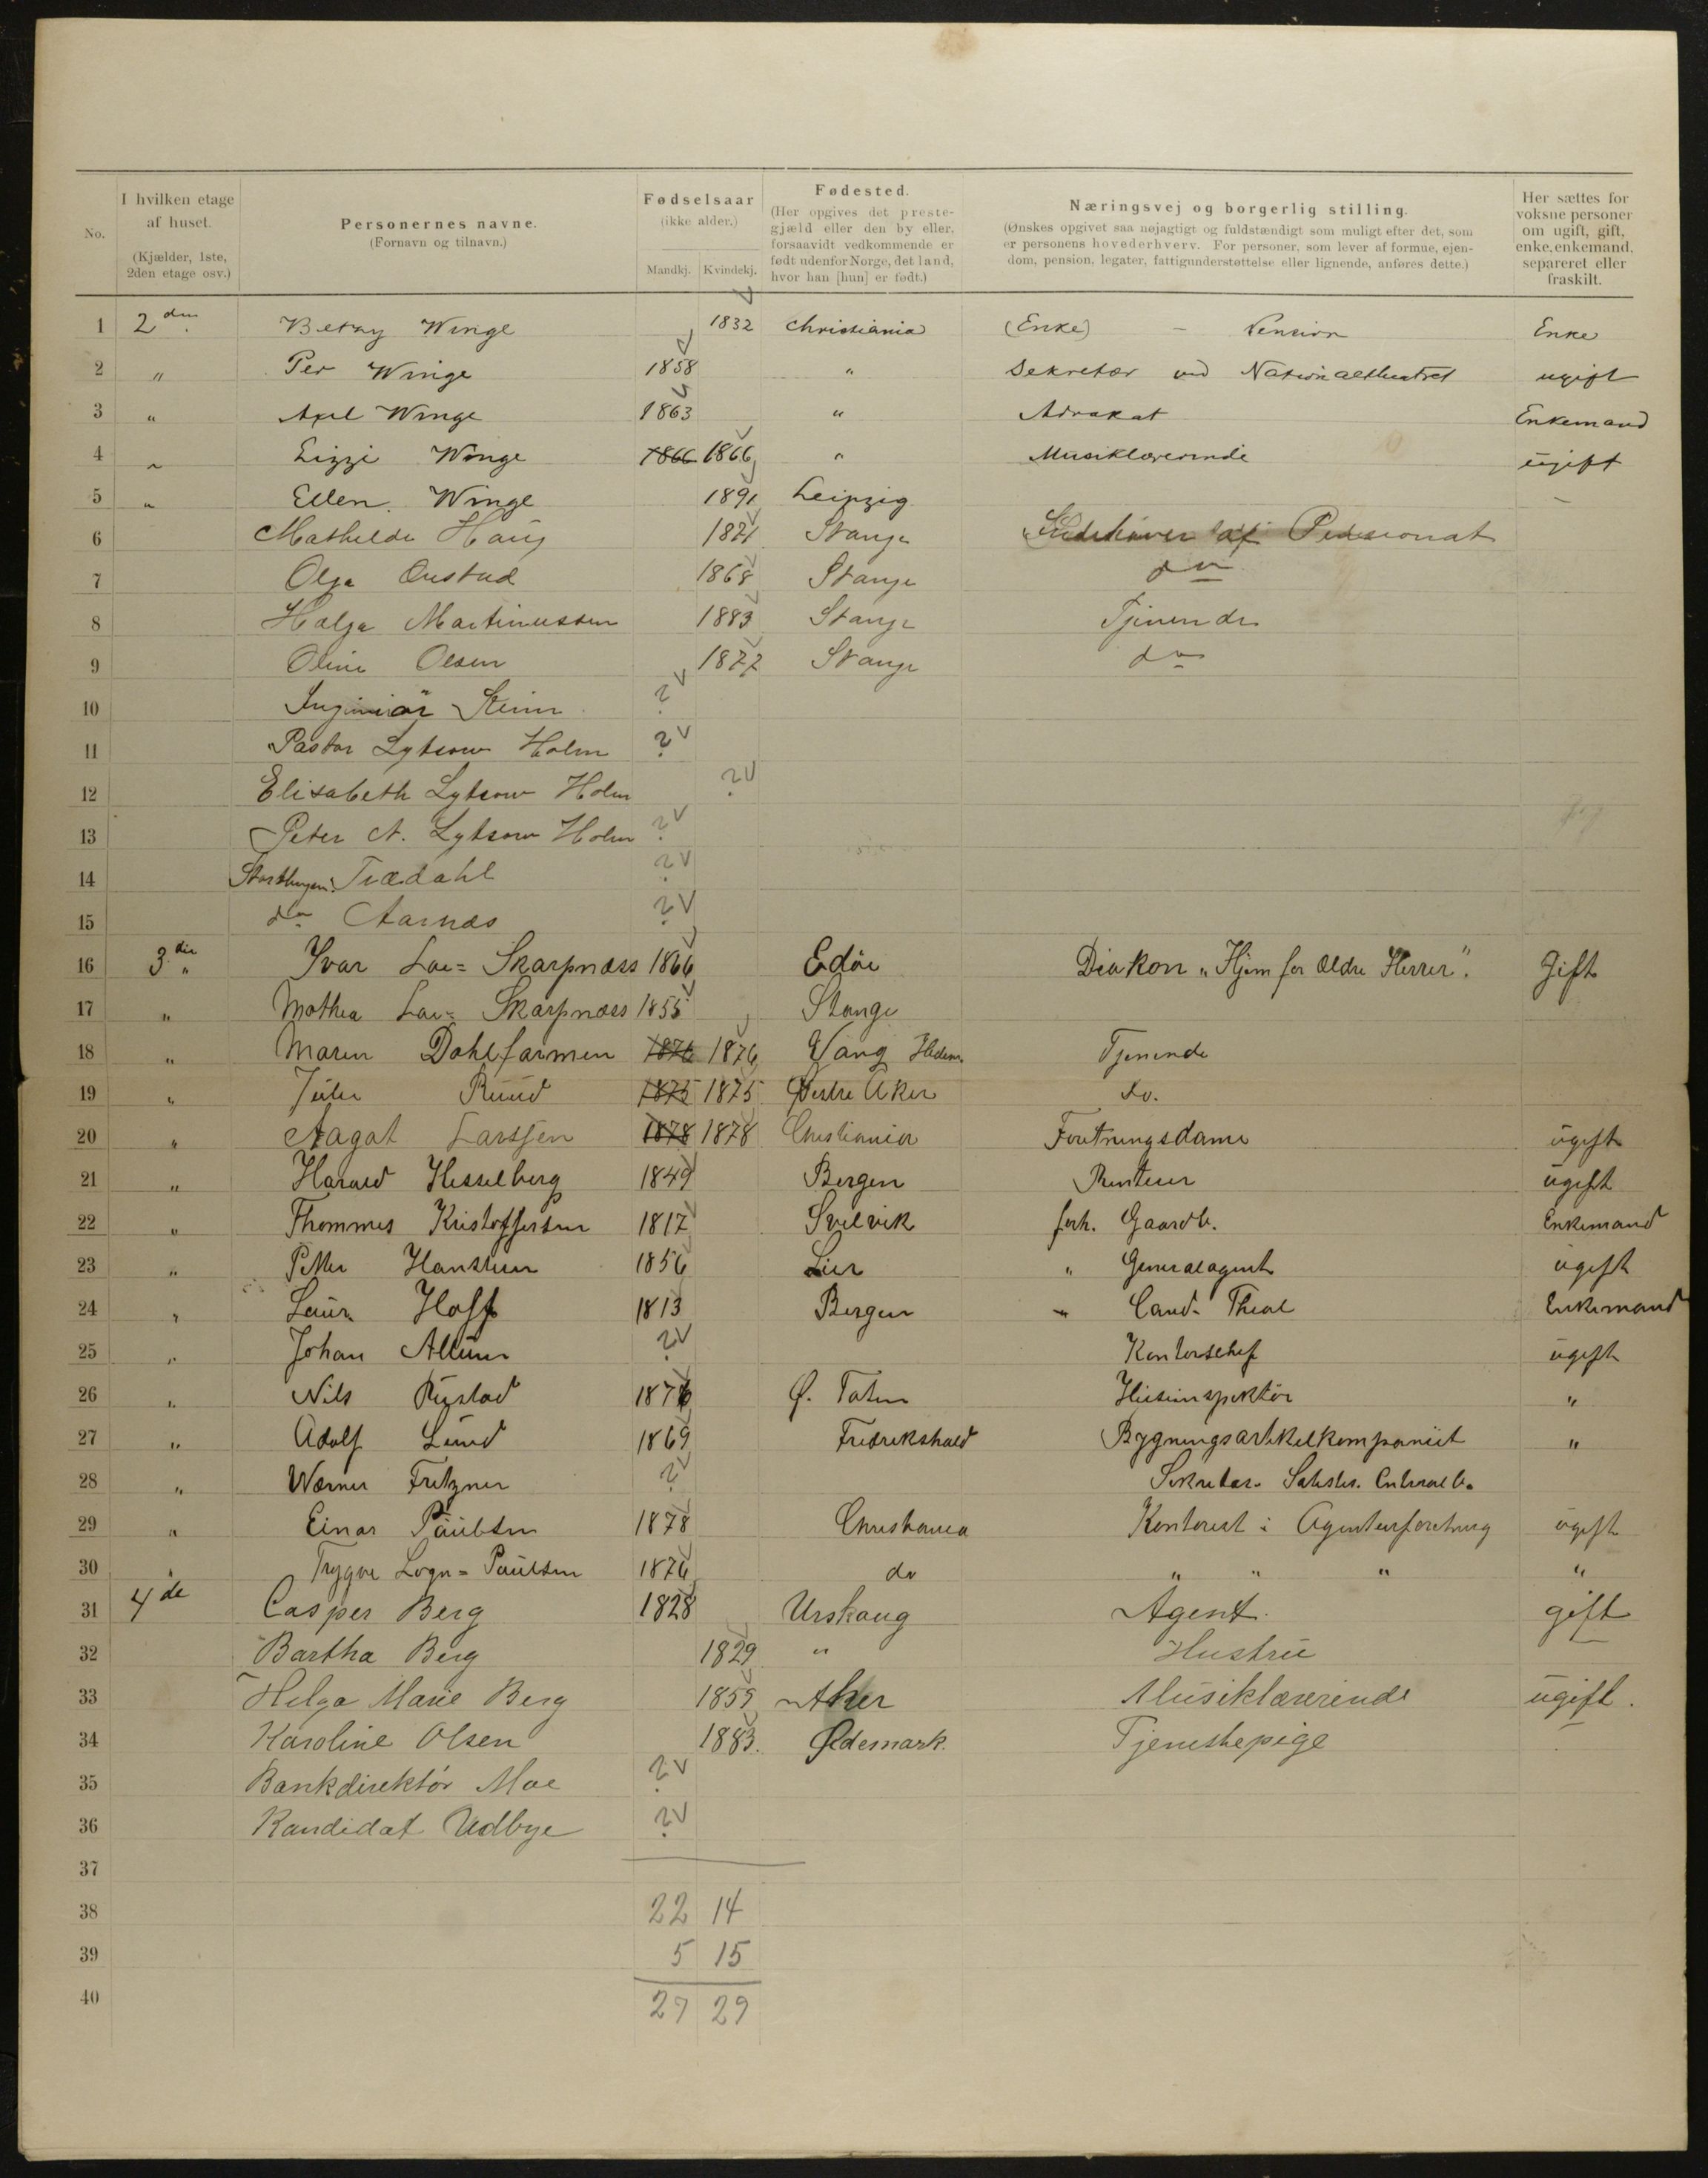 No.
I hvilken etage af huset. (Kjælder, 1ste, 2den etage osv.)
Personernes navne. (Fornavn og tilnavn.)
Fødselsaar (ikke alder.) Mandkj. Kvindekj.
Fødested. (Her opgives det prestegjæld eller den by eller, forsaavidt vedkommende er født udenfor Norge, det land, hvor han [hun] er født.)
Næringsvej og borgerlig stilling. (Ønskes opgivet saa nøjagtigt og fuldstændigt som muligt efter det, som er personens hovederhverv. For personer, som lever af formue, ejendom, pension, legater, fattigunderstøttelse eller lignende, anføres dette.)
Her sættes for voksne personer om ugift, gift, enke, enkemand, separeret eller fraskilt.
1 2den Betzy Winge 1832 Christiania (Enke) - Pension Enke
2 " Per Winge 1858 " Sekretær ved Nationaltheatret ugift
3 " Axel Winge 1863 " Advokat Enkemand
4 " Lizzi Winge 1866 1866 " Musiklærerinde ugift
5 " Ellen Winge 1891 Leipzig -
6 Mathilde Haug 1821 Stange Indehaver af Pensionat
7 Olga Onstad 1868 Stange do
8 Helga Martinussen 1883 Stange Tjenende
9 Oline Olsen 1877 Stange do
10 Ingeniør Stein ?
11 Pastor Lytzow Holm ?
12 Elisabeth Lytzow Holm ?
13 Peter A. Lytzow Holm ?
14 Storthingsm. Trædahl ?
15 do Aarnæs ?
16 3die " Ivar Lae= Skarpnæss 1866 Edøe Diakon "Hjem for Ældre Herrer". Gift
17 " Mathea Lae= Skarpnæss 1855 Stange
18 " Maren Dahlfarmen 1876 1876 Vang Hedem. Tjenende
19 " Julie Ruud 1875 1875 Vestre Aker do.
20 " Aagot Larssen 1878 1878 Christiania Foretningsdame ugift
21 " Harald Hesselberg 1849 Bergen Rentier ugift
22 " Thommes Kristoffersen 1817 Svelvik forh. Gaardb. Enkemand
23 " Petter Hanssen 1856 Lier " Generalagent ugift
24 " Laur. Hoff 1813 Bergen " Cand. Theol Enkemand
25 " Johan Allum ? Kontorschef ugift
26 " Nils Rystad 1876 Ø. Toten Husinspektør "
27 " Adolf Lund 1869 Fredrikshald Bygningsartikelkompaniet "
28 " Werner Fritzner ? Sekretær. Statist. Centralb.
29 " Einar Paulsen 1878 Christiania Kontorist i Agenturforetning ugift
30 " Trygve Logn= Paulsen 1876 do " " " "
31 4de Casper Berg 1828 Urskaug Agent. gift
32 Bartha Berg 1829 " Hustru -
33 Helga Marie Berg 1859 Aker Musiklærerinde ugift.
34 Karoline Olsen 1883. Ødemark. Tjenestepige -
35 Bankdirektør Moe ?
36 Kandidat Udbye ?
37
38 22 14
39 5 15
40 27 29